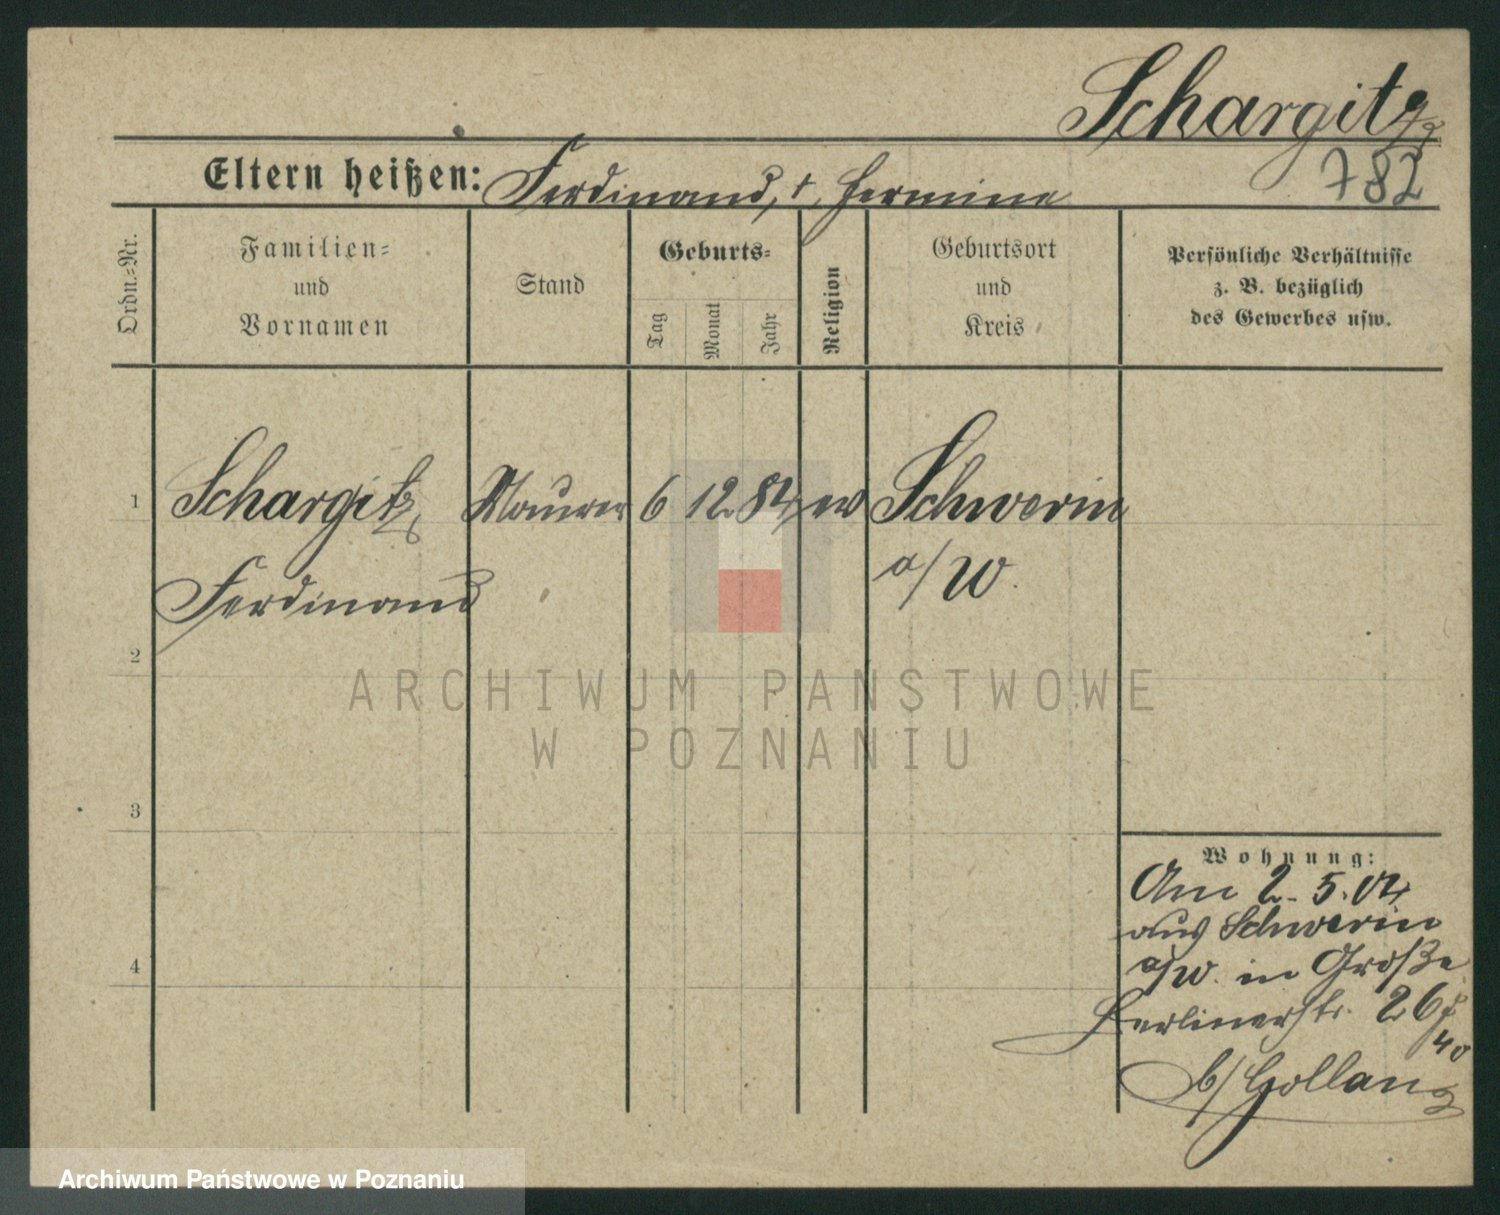 Schargitz
782
Eltern heißen: Ferdinand, †, Hermine
Ordn.-Nr.
Familien-
und
Vornamen
Stand
Geburts-
Tag
Monat
Jahr
Religion
Geburtsort
und
Kreis
Persönliche Verhältnisse
z. B. bezüglich
des Gewerbes usw.
1 Schargitz, Maurer 6 12 84 ev Schwerin
a/W.
Ferdinand
2
ARCHIWUM PAŃSTWOWE
W POZNANIU
3
Wohnung:
Am 2. 5. 04
aus Schwerin
4
a/W. in Große
Berlinerstr. 26
40
b/ Gollanz
Archiwum Państwowe w Poznaniu